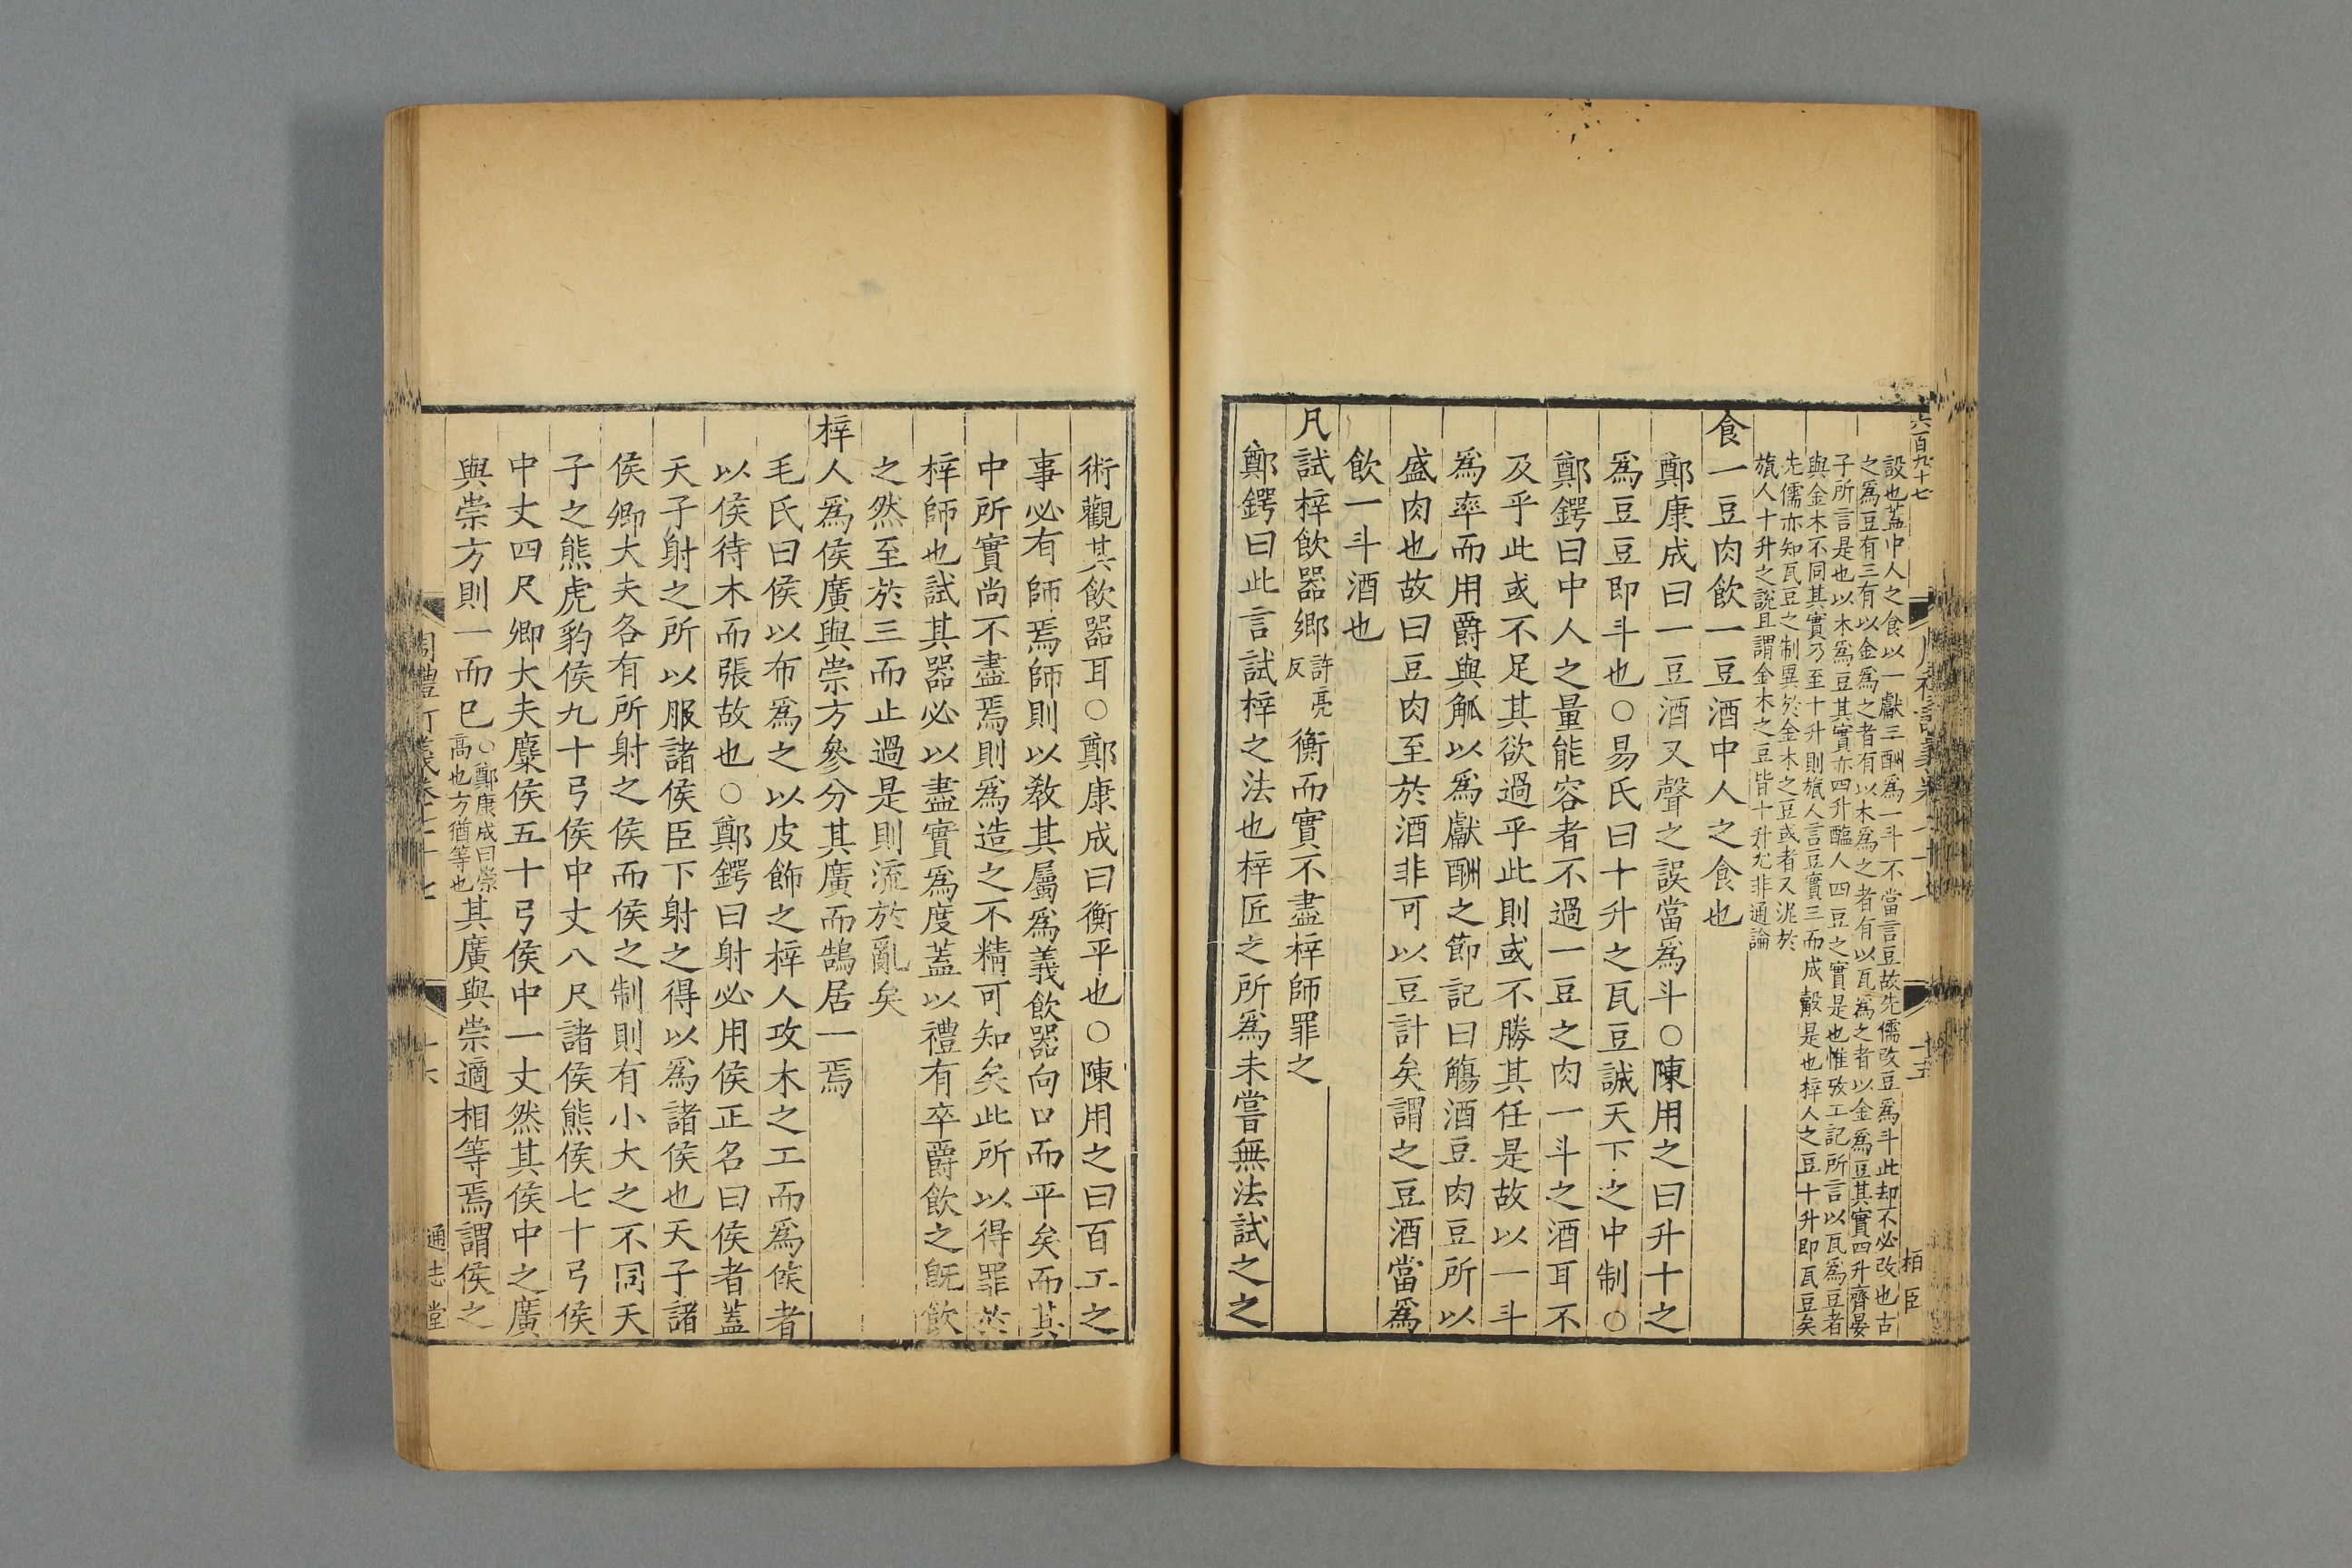 六百九十七
設也蓋中人之食以一獻三酬爲一斗不當言豆故先儒改豆爲斗此却不必改也古
之爲豆有三有以金爲之者有以木爲之者有以瓦爲之者以金爲豆其實四升齊晏
子所言是也以木爲豆其實亦四升醢人四豆之實是也惟攷工記所言以瓦爲豆者
與金木不同其實乃至十升則旊人言豆實三而成觳是也梓人之豆十升即瓦豆矣
先儒亦知瓦豆之制異於金木之豆或者又泥於
旊人十升之說且謂金木之豆皆十升尤非通論
食一豆肉飲一豆酒中人之食也
鄭康成曰一豆酒又聲之誤當爲斗○陳用之曰升十之
爲豆豆即斗也○易氏曰十升之瓦豆誠天下之中制○
鄭鍔曰中人之量能容者不過一豆之肉一斗之酒耳不
及乎此或不足其欲過乎此則或不勝其任是故以一斗
爲率而用爵與觚以爲獻酬之節記曰觴酒豆肉豆所以
盛肉也故曰豆肉至於酒非可以豆計矣謂之豆酒當爲
飲一斗酒也
凡試梓飲器鄉許亮反衡而實不盡梓師罪之
鄭鍔曰此言試梓之法也梓匠之所爲未嘗無法試之之
十五
栢臣
術觀其飲器耳○鄭康成曰衡平也○陳用之曰百工之
事必有師焉師則以敎其屬爲義飲器向口而平矣而其
中所實尚不盡焉則爲造之不精可知矣此所以得罪於
梓師也試其器必以盡實爲度蓋以禮有卒爵飲之旣飲
之然至於三而止過是則流於亂矣
梓人爲侯廣與崇方參分其廣而鵠居一焉
毛氏曰侯以布爲之以皮飾之梓人攻木之工而爲侯者
以侯待木而張故也○鄭鍔曰射必用侯正名曰侯者蓋
天子射之所以服諸侯臣下射之得以爲諸侯也天子諸
侯卿大夫各有所射之侯而侯之制則有小大之不同天
子之熊虎豹侯九十弓侯中丈八尺諸侯熊侯七十弓侯
中丈四尺卿大夫麋侯五十弓侯中一丈然其侯中之廣
與崇方則一而已○鄭康成曰崇高也方猶等也其廣與崇適相等焉謂侯之
十六
通志堂